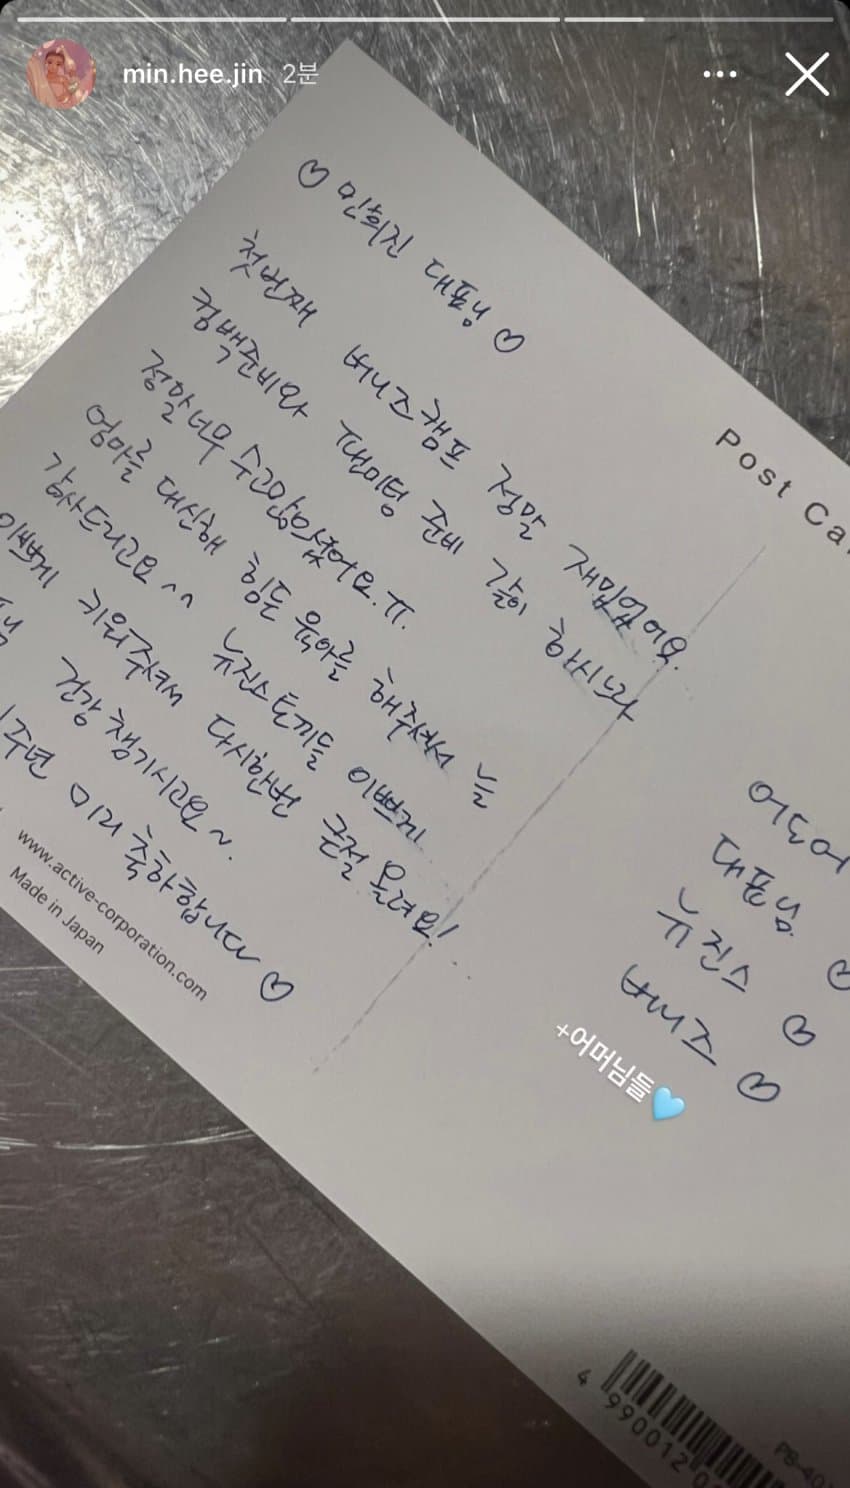 min.hee.jin 2분
♡ 민희진 대표님 ♡
첫번째 버니즈캠프 정말 재밌었어요.
컴백준비와 팬미팅 준비 같이 하시느라
정말 너무 수고많으셨어요.ㅠ.
엄마를 대신해 힘든 육아를 해주셔서 늘
감사드리고요^^ 뉴진스토끼들 이쁘게
이쁘게 키워주셔서 다시한번 큰절 올려요!
건강 챙기시고요~.
1주년 미리 축하합니다♡
www.active-corporation.com
Made in Japan
Post Ca
어도어
대표님
뉴진스 ♡
버니즈 ♡
+어머님들🩵
4 990012 0
PB-401